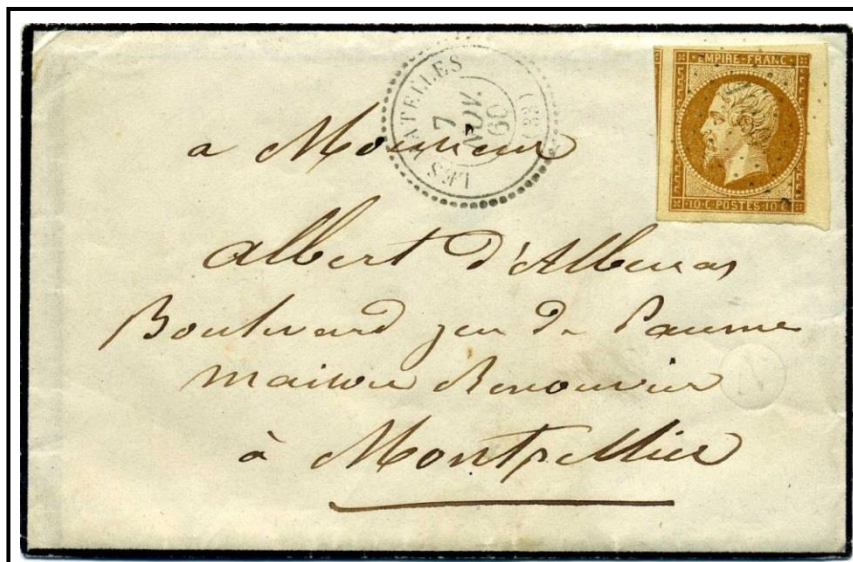 LES MATELLES (33)
7
NOV.
60
EMPIRE FRANC
10·C·POSTES·10·C
a Monsieur
albert d'Albenas
Boulevard jeu de Paume
maison Renouvier
à Montpellier
N